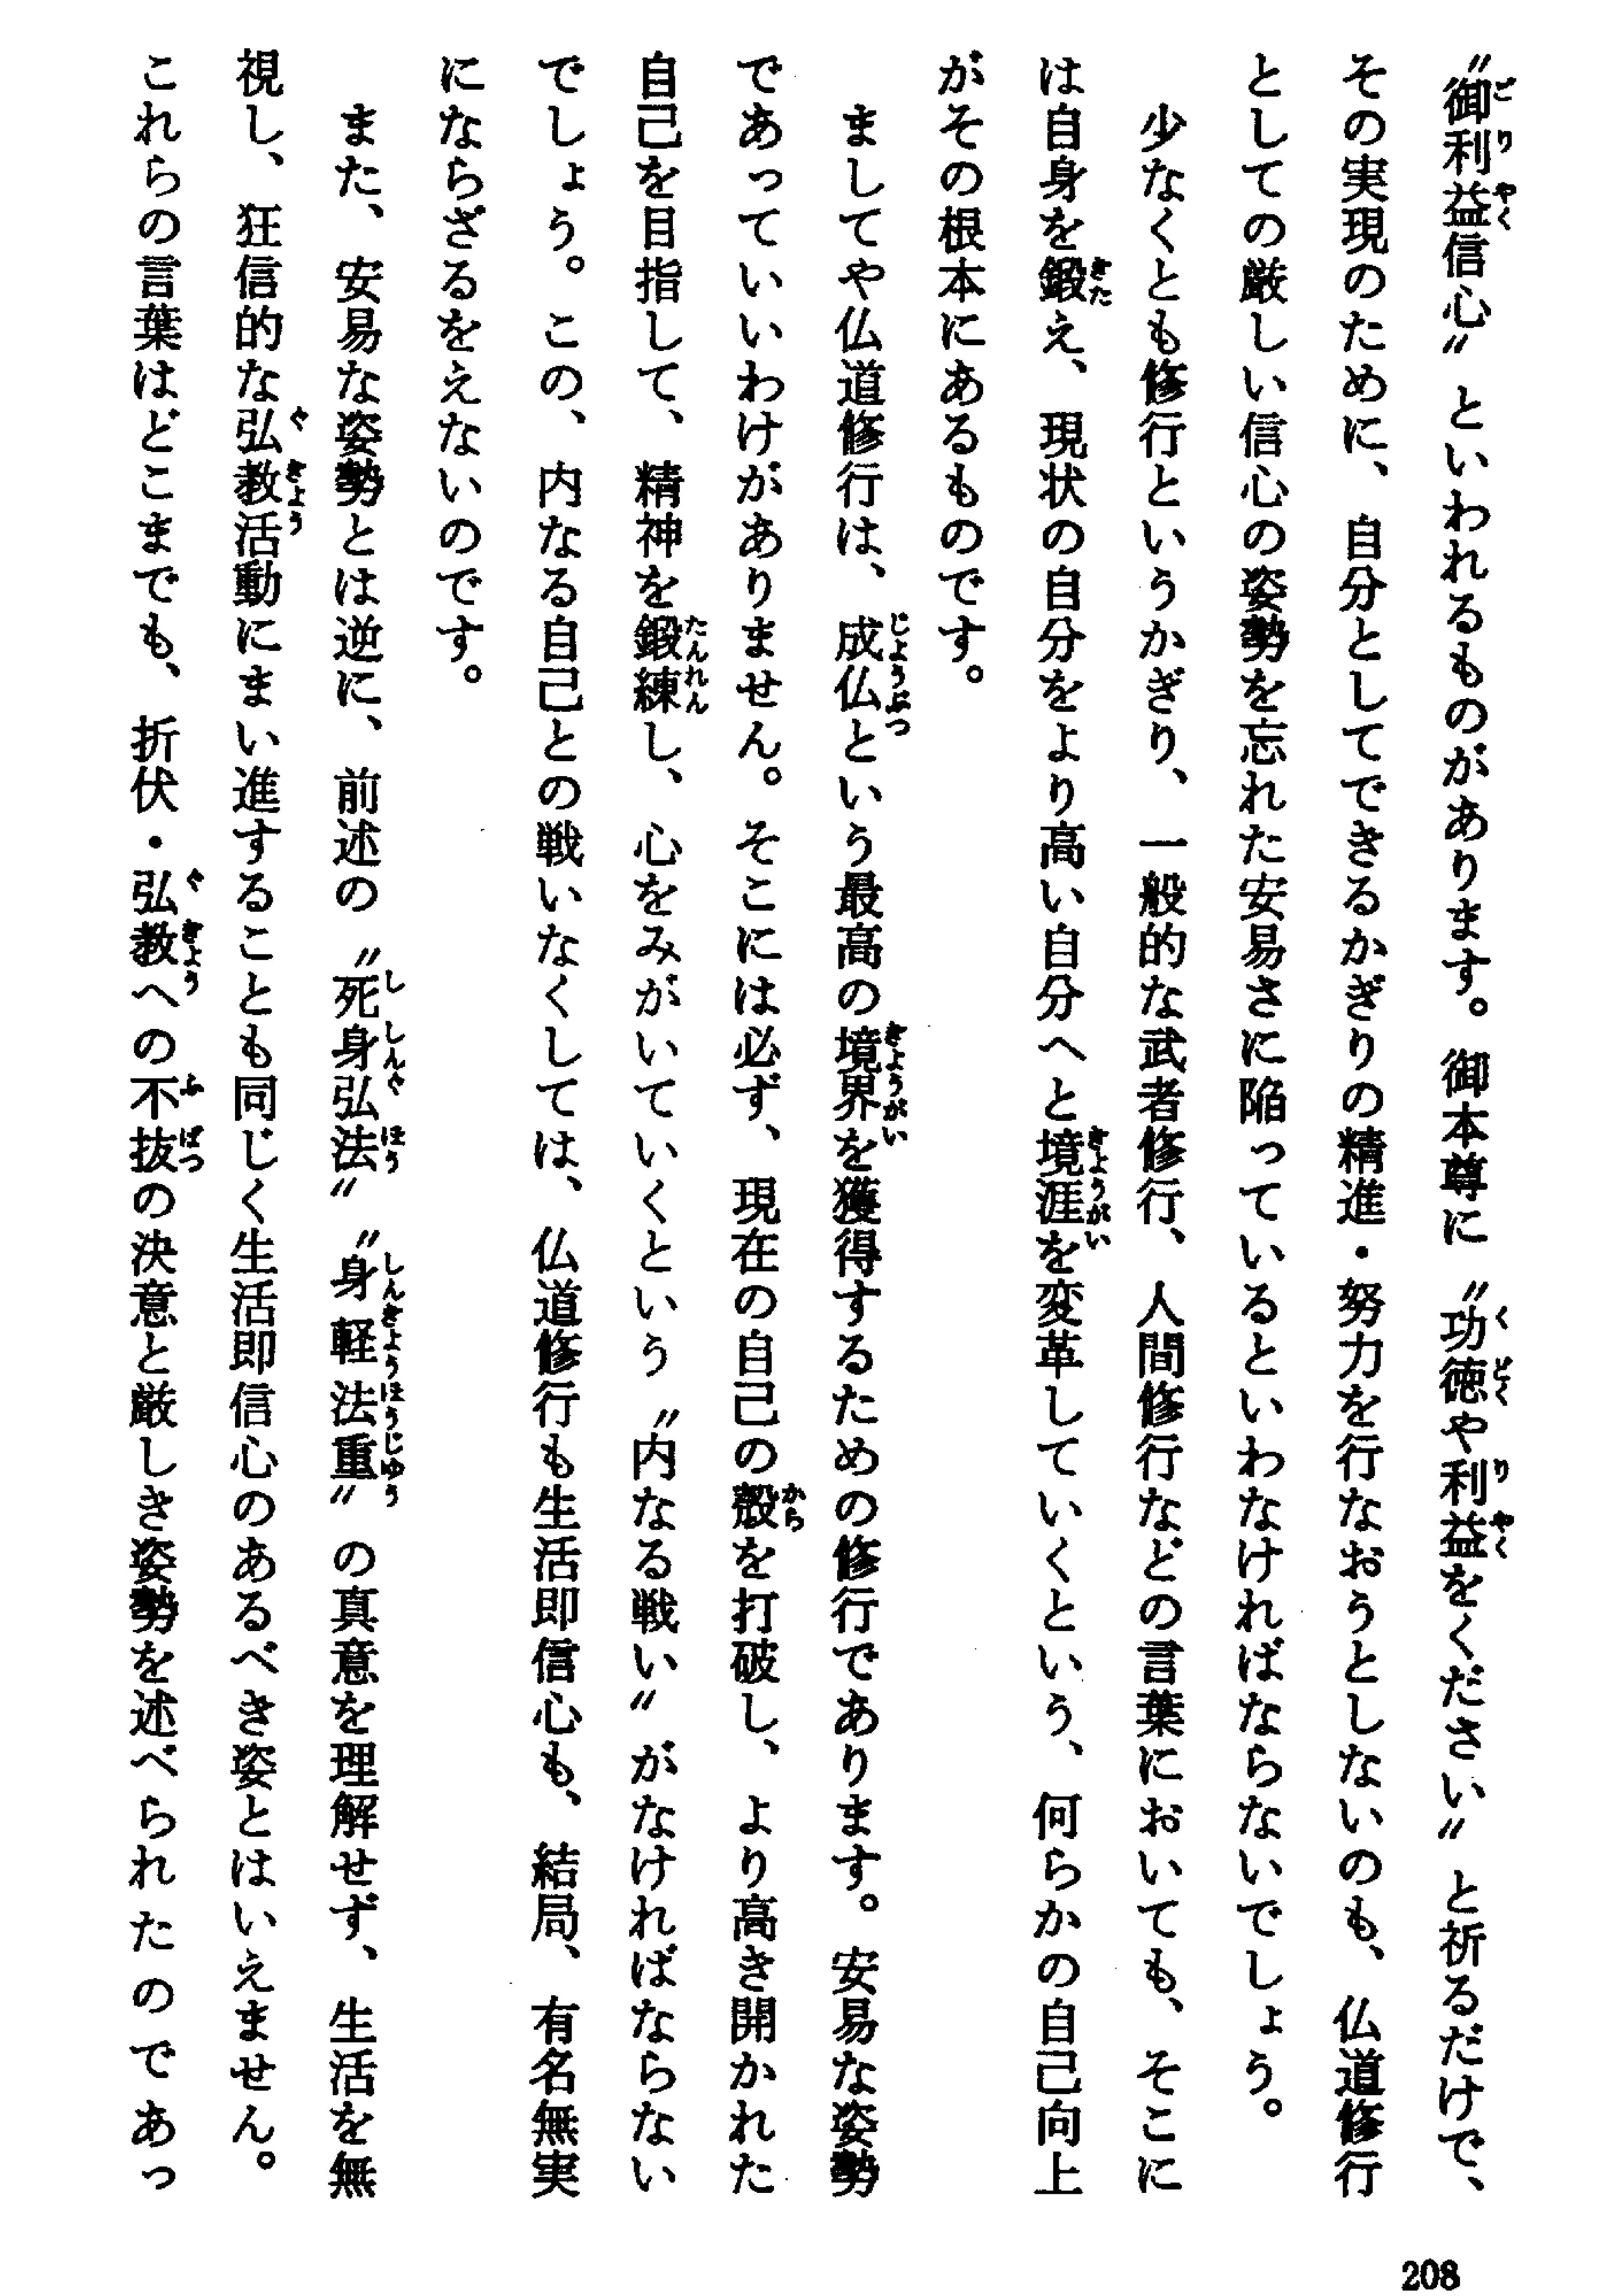 〝御利益信心〟といわれるものがあります。御本尊に〝功徳や利益をください〟と祈るだけで、
その実現のために、自分としてできるかぎりの精進・努力を行なおうとしないのも、仏道修行
としての厳しい信心の姿勢を忘れた安易さに陥っているといわなければならないでしょう。
少なくとも修行というかぎり、一般的な武者修行、人間修行などの言葉においても、そこに
は自身を鍛え、現状の自分をより高い自分へと境涯を変革していくという、何らかの自己向上
がその根本にあるものです。
ましてや仏道修行は、成仏という最高の境界を獲得するための修行であります。安易な姿勢
であっていいわけがありません。そこには必ず、現在の自己の殻を打破し、より高き開かれた
自己を目指して、精神を鍛練し、心をみがいていくという〝内なる戦い〟がなければならない
でしょう。この、内なる自己との戦いなくしては、仏道修行も生活即信心も、結局、有名無実
にならざるをえないのです。
また、安易な姿勢とは逆に、前述の〝死身弘法〟〝身軽法重〟の真意を理解せず、生活を無
視し、狂信的な弘教活動にまい進することも同じく生活即信心のあるべき姿とはいえません。
これらの言葉はどこまでも、折伏・弘教への不抜の決意と厳しき姿勢を述べられたのであっ
208